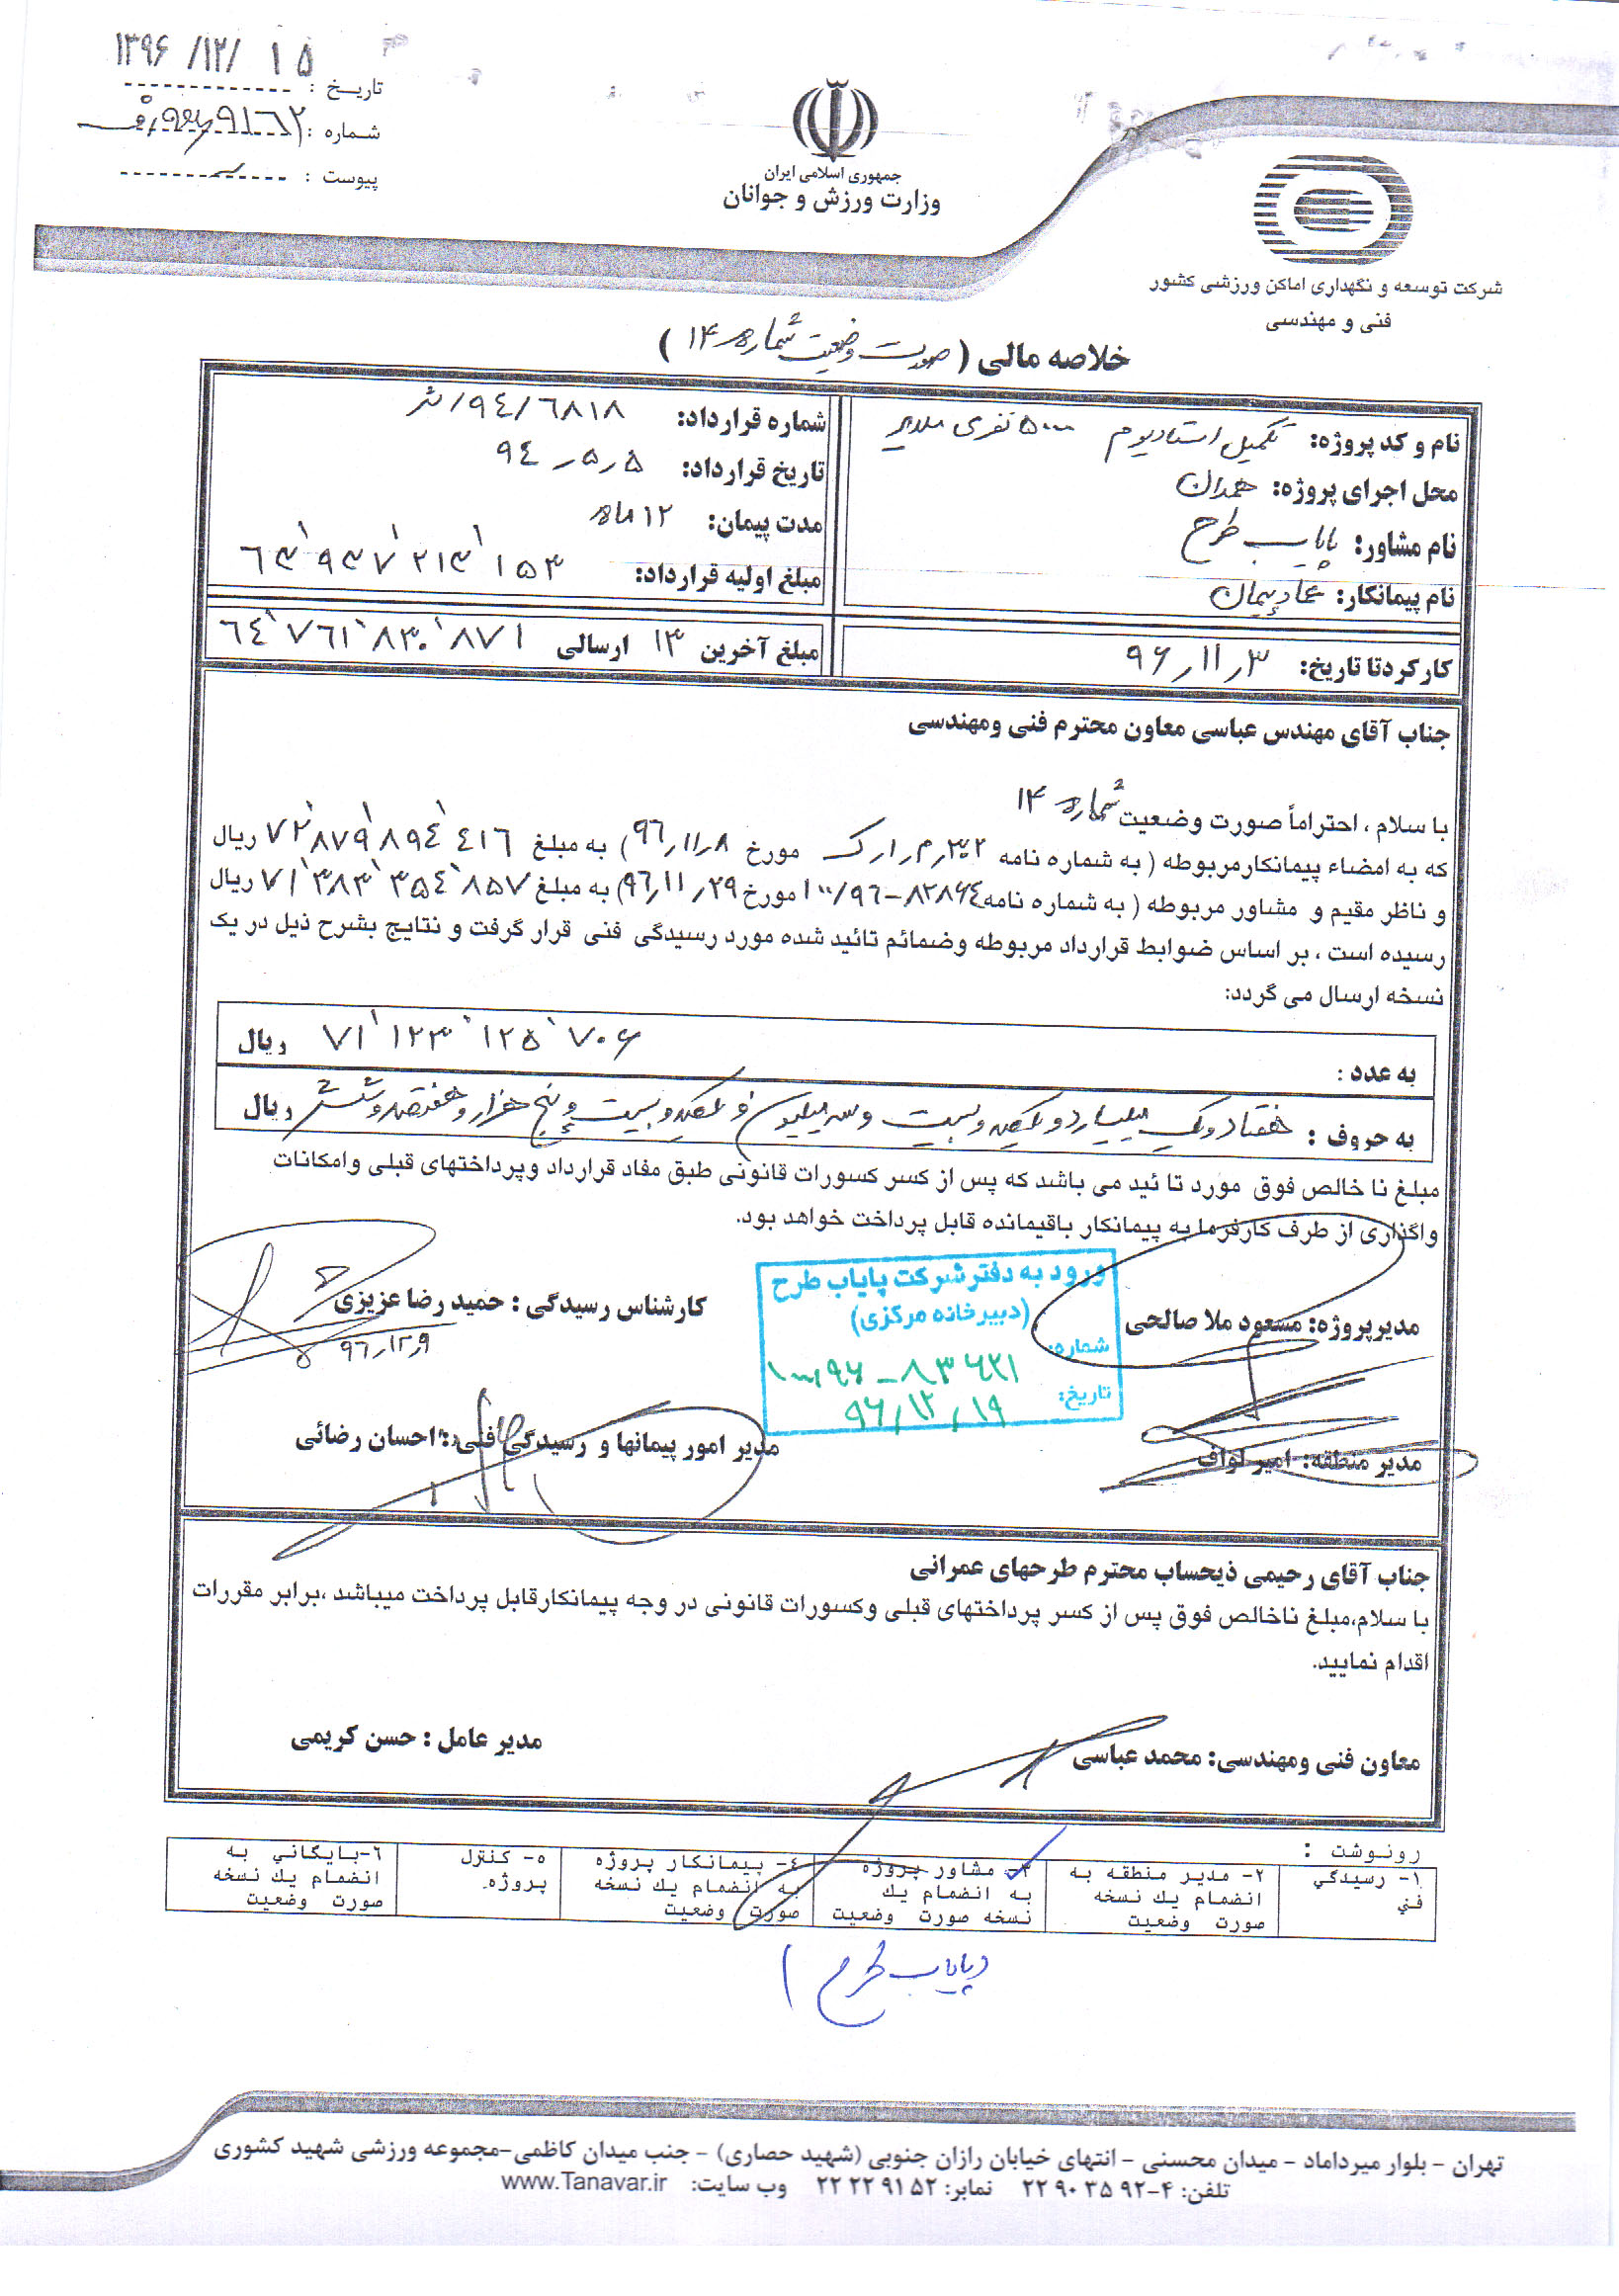 تاریخ : ۱۳۹۶/۱۲/۱۵
شماره :
پیوست :
جمهوری اسلامی ایران
وزارت ورزش و جوانان
شرکت توسعه و نگهداری اماکن ورزشی کشور
فنی و مهندسی
خلاصه مالی ( صورت وضعیت شماره ۱۴ )
نام و کد پروژه: تکمیل استادیوم ۵۰۰۰ نفری ملایر
محل اجرای پروژه: همدان
نام مشاور: پایاب طرح
نام پیمانکار: عماد پیمان
شماره قرارداد: ۹۴/۶۸۱۸/ش
تاریخ قرارداد: ۹۴ر۵ر۵
مدت پیمان: ۱۲ ماه
مبلغ اولیه قرارداد: ۶۳٬۹۳۷٬۲۱۳٬۱۵۳
کارکردتا تاریخ: ۹۶ر۱۱ر۳
مبلغ آخرین ۱۳ ارسالی ۶۴٬۷۶۱٬۸۳۰٬۸۷۱
جناب آقای مهندس عباسی معاون محترم فنی ومهندسی
با سلام ، احتراماً صورت وضعیت شماره ۱۴
که به امضاء پیمانکارمربوطه ( به شماره نامه ۳۰۲رم ر۱رک مورخ ۹۶ر۱۱ر۸) به مبلغ ۷۲٬۸۷۹٬۸۹۴٬۴۱۶ ریال
و ناظر مقیم و مشاور مربوطه ( به شماره نامه ۸۲۸۶۴-۱۰۰/۹۶ مورخ ۹۶ر۱۱ر۲۹) به مبلغ ۷۱٬۳۸۳٬۳۵۴٬۸۵۷ ریال
رسیده است ، بر اساس ضوابط قرارداد مربوطه وضمائم تائید شده مورد رسیدگی فنی قرار گرفت و نتایج بشرح ذیل در یک
نسخه ارسال می گردد:
به عدد : ۷۱٬۱۲۳٬۱۲۵٬۷۰۶ ریال
به حروف : هفتاد و یک میلیارد و یکصد و بیست و سه میلیون و یکصد و بیست و پنج هزار و هفتصد و شش ریال
مبلغ نا خالص فوق مورد تا ئید می باشد که پس از کسر کسورات قانونی طبق مفاد قرارداد وپرداختهای قبلی وامکانات
واگذاری از طرف کارفرما به پیمانکار باقیمانده قابل پرداخت خواهد بود.
ورود به دفتر شرکت پایاب طرح
(دبیرخانه مرکزی)
شماره: ۸۳۶۲۱-۱۰۰/۹۶
تاریخ: ۹۶/۱۲/۱۹
مدیرپروژه: مسعود ملا صالحی
کارشناس رسیدگی : حمید رضا عزیزی
۹۶ر۱۲ر۹
مدیر منطقه: امیر لواف
مدیر امور پیمانها و رسیدگی فنی : احسان رضائی
جناب آقای رحیمی ذیحساب محترم طرحهای عمرانی
با سلام،مبلغ ناخالص فوق پس از کسر پرداختهای قبلی وکسورات قانونی در وجه پیمانکارقابل پرداخت میباشد ،برابر مقررات
اقدام نمایید.
معاون فنی ومهندسی: محمد عباسی
مدیر عامل : حسن کریمی
رونوشت :
۱- رسیدگي فني
۲- مدیر منطقه به انضمام يك نسخه صورت وضعیت
۳- مشاور پروژه به انضمام يك نسخه صورت وضعیت
۴- پیمانکار پروژه به انضمام يك نسخه صورت وضعیت
۵- کنترل پروژه.
۶-بایگاني به انضمام يك نسخه صورت وضعیت
( پایاب طرح )
تهران - بلوار میرداماد - میدان محسنی - انتهای خیابان رازان جنوبی (شهید حصاری) - جنب میدان کاظمی-مجموعه ورزشی شهید کشوری
تلفن: ۴-۹۲ ۳۵ ۹۰ ۲۲ نمابر: ۵۲ ۹۱ ۲۲ ۲۲ وب سایت: www.Tanavar.ir